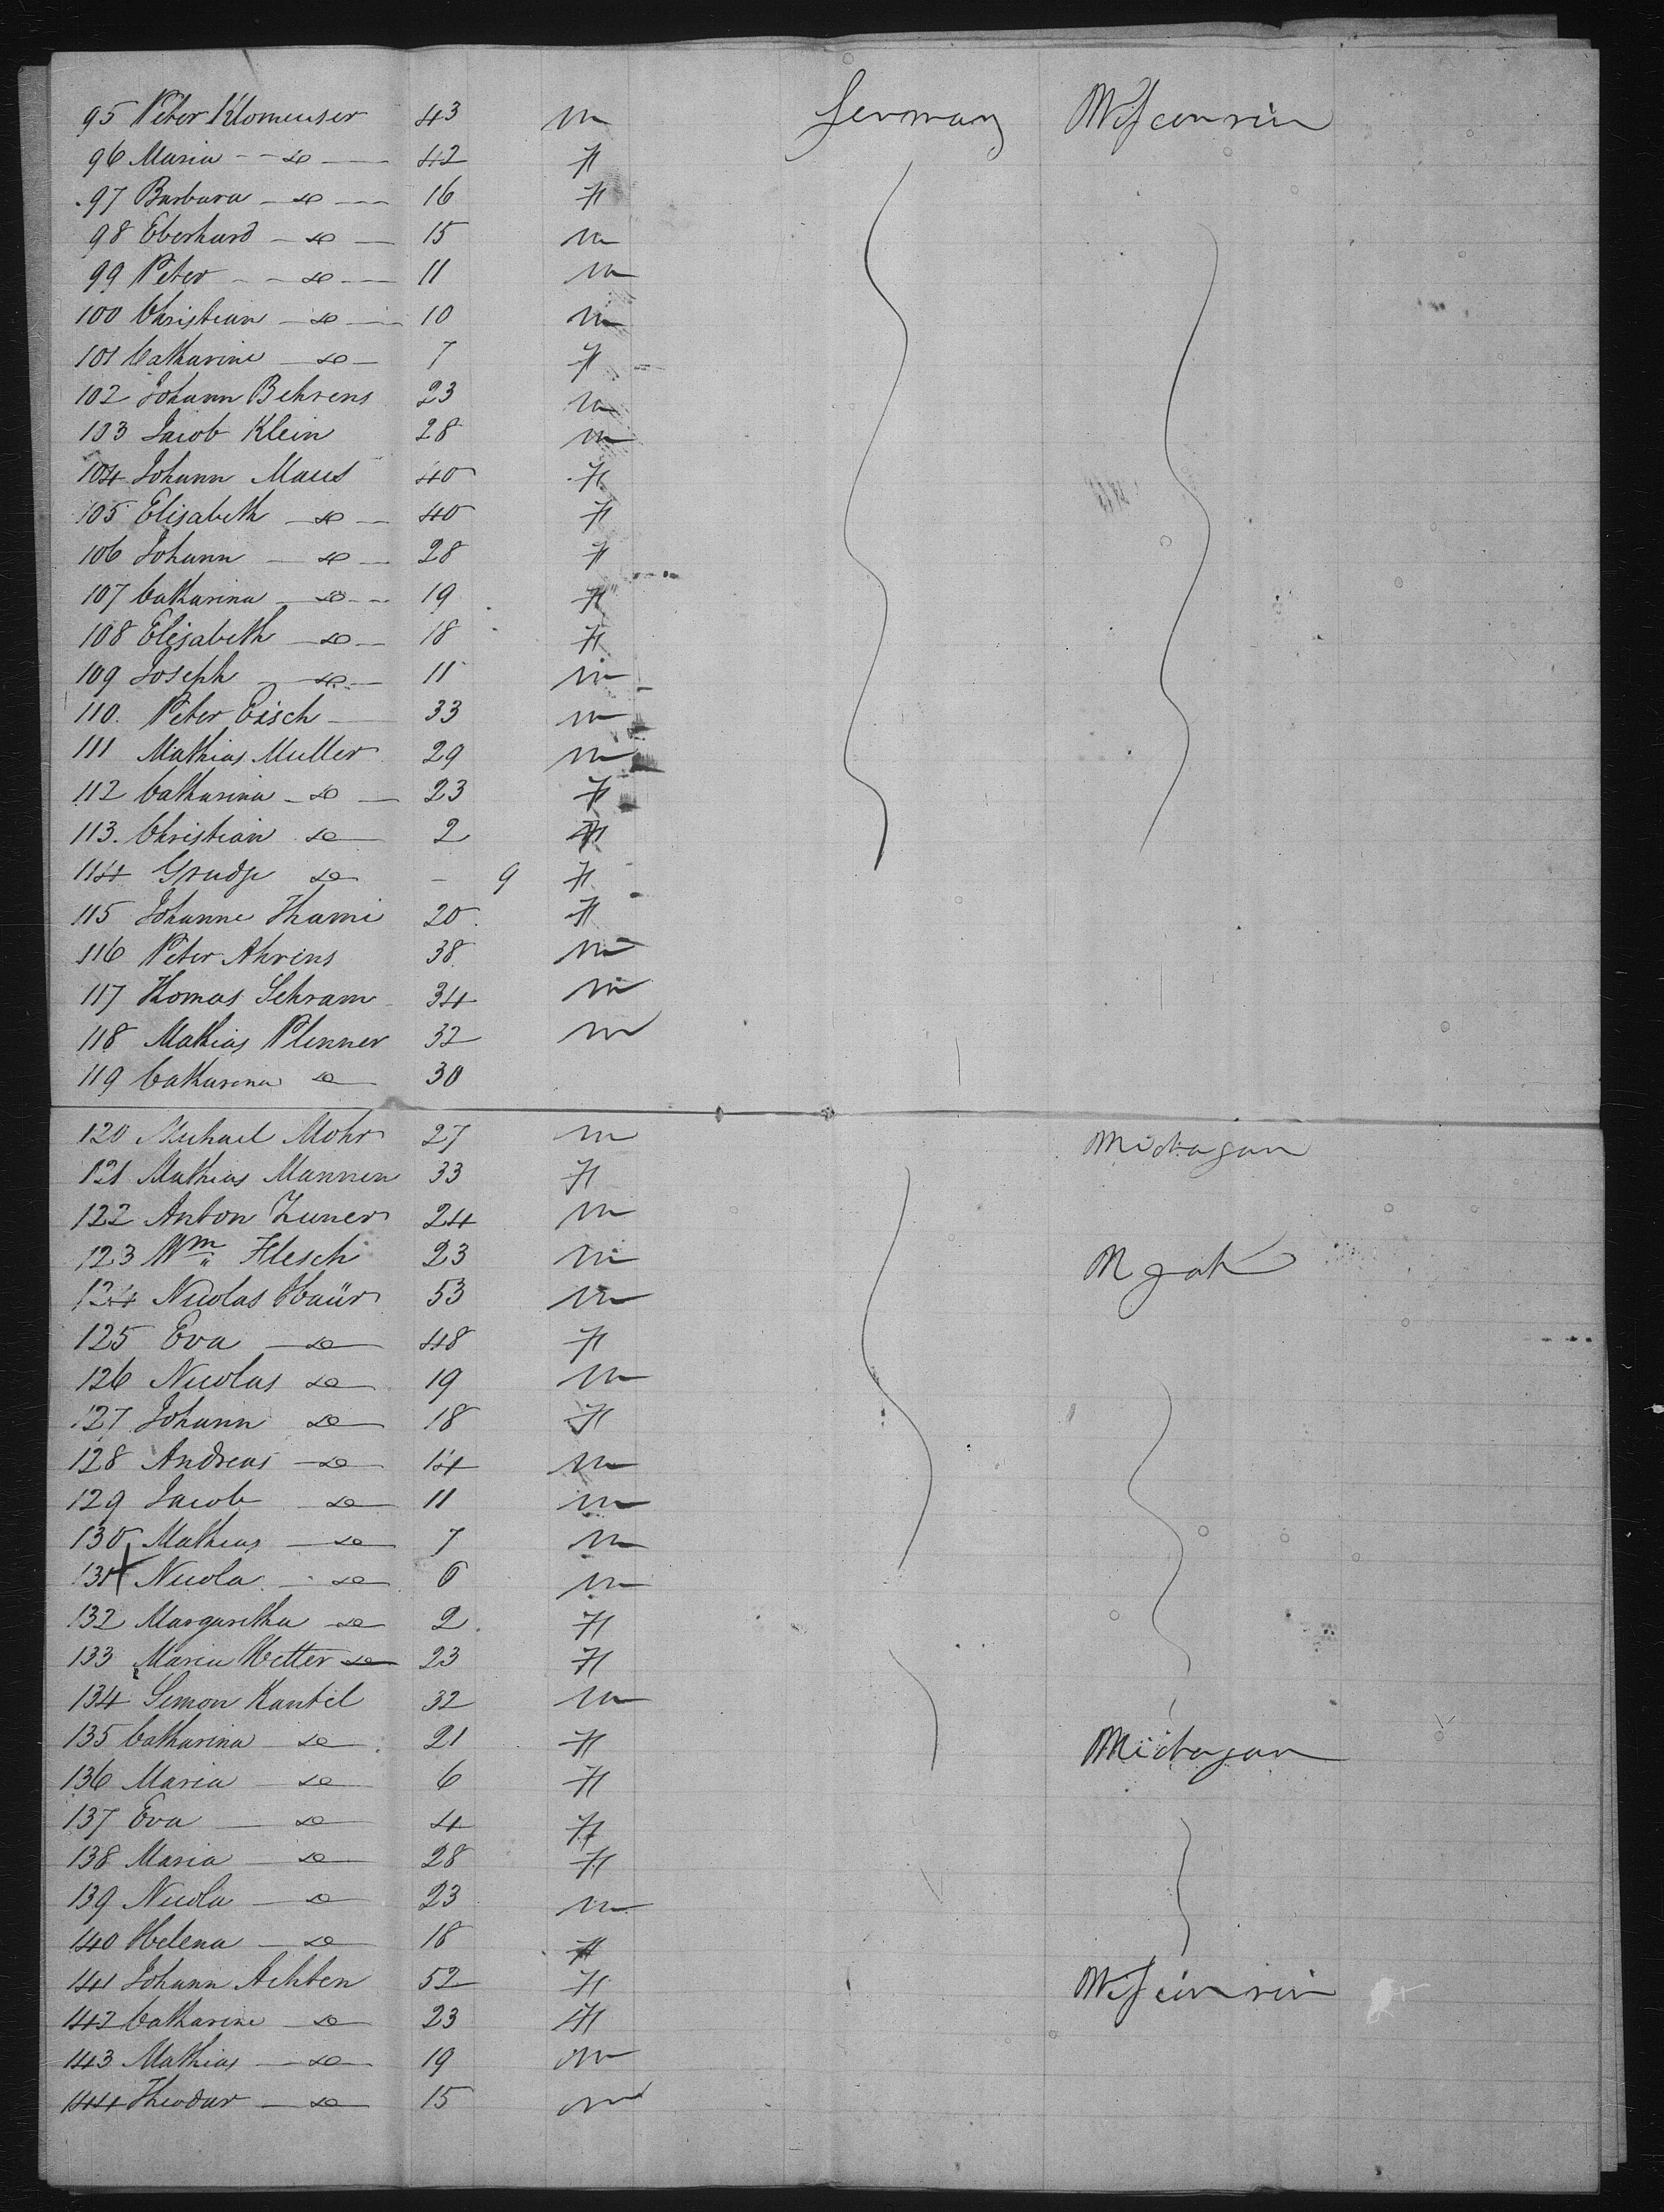 95 Peter Klomenser 43 m Germany Wisconsin
96 Maria - - do - 42 F
97 Barbara - do - 16 F
98 Eberhard - do - 15 m
99 Peter - - do - 11 m
100 Christian - do - 10 m
101 Catharine - do - 7 F
102 Johann Behrens 23 m
103 Jacob Klein 28 m
104 Johann Maus 40 F
105 Elisabeth - do - 40 F
106 Johann - do - 28 F
107 Catharina - do - 19 F
108 Elisabeth - do - 18 F
109 Joseph - do - 11 m
110. Peter Eisch - 33 m
111 Mathias Muller 29 m
112 Catharina - do - 23 F
113. Christian do - 2 F
114 do - - 9 F
115 Johanne Thami 20 F
116 Peter Ahrens 38 m
117 Thomas Schram 34 m
118 Mathias Plenner 32 m
119 Catharina do - 30
120 Michael Mohr 27 m Michagan
121 Mathias Mannen 33 F
122 Anton Zuner 24 m
123 Wm Flesch 23 m
124 Nicolas 53 m
125 Eva - do - 48 F
126 Nicolas do - 19 m
127 Johann do - 18 F
128 Andreas - do - 14 m
129 Jacob - do - 11 m
130 Mathias - do - 7 m
131 Nicola - do - 6 m
132 Margaretha - do - 2 F
133 Maria Vetter do 23 F
134 Simon Kantel 32 m
135 Catharina - do - 21 F Michagan
136 Maria - do - 6 F
137 Eva - do - 4 F
138 Maria - do - 28 F
139 Nicola - do - 23 m
140 Helena - do - 18 F
141 Johann Achten 52 F Wisconsin
142 Catharine - do - 23 F
143 Mathias - do - 19 m
144 Theodor - do - 15 m